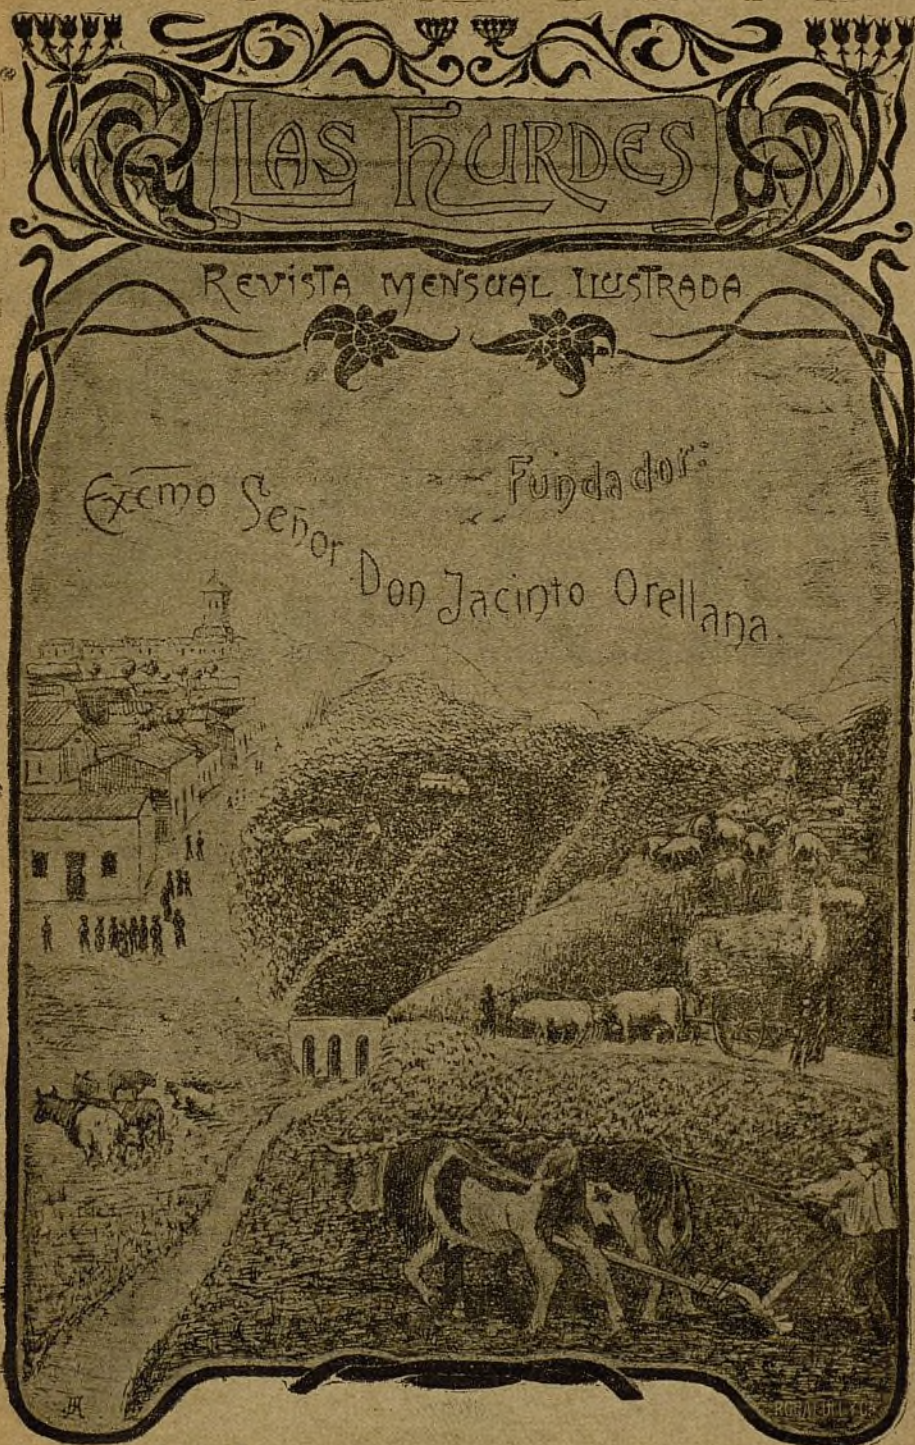 LAS HURDES
REVISTA MENSUAL ILUSTRADA
Fundador:
Excmo Señor Don Jacinto Orellana.